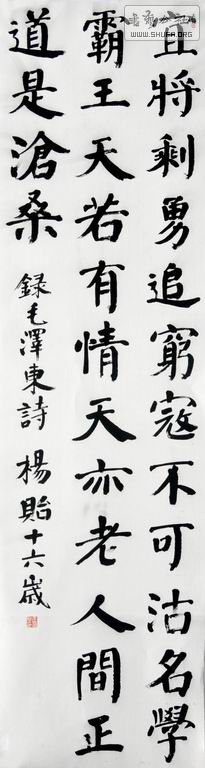 WWW.SHUFA.ORG
宜將剩勇追窮寇不可沽名學
霸王天若有情天亦老人間正
道是滄桑
録毛澤東詩 楊貽十六歲